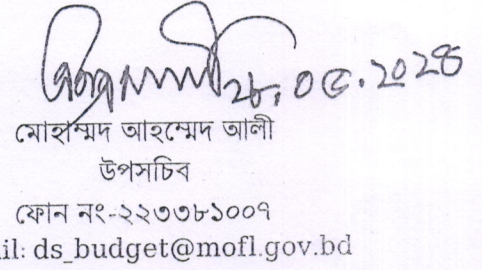 ২৮.০৫.২০২৪
মোহাম্মদ আহম্মেদ আলী
উপসচিব
ফোন নং-২২৩৩৮১০০৭
il: ds_budget@mofl.gov.bd